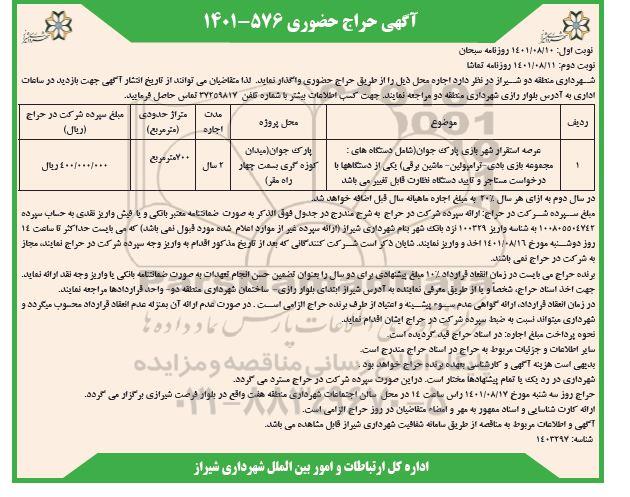 آگهی حراج حضوری ۵۷۶-۱۴۰۱
نوبت اول: ۱۴۰۱/۰۸/۱۰ روزنامه سبحان
نوبت دوم: ۱۴۰۱/۰۸/۱۱ روزنامه تماشا
شهرداری منطقه دو شیراز در نظر دارد اجاره محل ذیل را از طریق حراج حضوری واگذار نماید. لذا متقاضیان می توانند از تاریخ انتشار آگهی جهت بازدید در ساعات
اداری به آدرس بلوار رازی شهرداری منطقه دو مراجعه نمایند. جهت کسب اطلاعات بیشتر با شماره تلفن ۳۷۲۵۹۸۱۷ تماس حاصل فرمایید.
ردیف موضوع محل پروژه مدت اجاره متراژ حدودی (مترمربع) مبلغ سپرده شرکت در حراج (ریال)
۱ عرصه استقرار شهر بازی پارک جوان(شامل دستگاه های : مجموعه بازی بادی-ترامپولین- ماشین برقی) یکی از دستگاهها با درخواست مستاجر و تایید دستگاه نظارت قابل تغییر می باشد پارک جوان(میدان کوزه گری بسمت چهار راه مقر) ۲ سال ۷۰۰مترمربع ۴۰۰/۰۰۰/۰۰۰ ریال
در سال دوم به ازای هر سال ۲۰٪ به مبلغ اجاره ماهیانه سال قبل اضافه خواهد شد.
مبلغ سپرده شرکت در حراج: ارائه سپرده شرکت در حراج به شرح مندرج در جدول فوق الذکر به صورت ضمانتنامه معتبر بانکی و یا فیش واریز نقدی به حساب سپرده
۱۰۰۸۰۵۵۰۴۷۴۲ به شناسه واریز ۱۰۰۳۲۹ نزد بانک شهر بنام شهرداری شیراز (ارائه سپرده غیر از موارد اعلام شده مورد قبول نمی باشد) که می بایست حداکثر تا ساعت ۱۴
روز دوشنبه مورخ ۱۴۰۱/۰۸/۱۶ اخذ و واریز نمایند. شایان ذکر است شرکت کنندگانی که بعد از تاریخ مذکور اقدام به واریز وجه سپرده شرکت در حراج نمایند، مجاز
به شرکت در حراج نمی باشند.
برنده حراج می بایست در زمان انعقاد قرارداد ۱۰٪ مبلغ پیشنهادی برای دو سال را بعنوان تضمین حسن انجام تعهدات به صورت ضمانتنامه بانکی یا واریز وجه نقد ارائه نماید.
جهت اخذ اسناد حراج، شخصاً و یا از طریق معرفی نماینده به آدرس شیراز ابتدای بلوار رازی- ساختمان شهرداری منطقه دو- واحد قراردادها مراجعه نمایند.
در زمان انعقاد قرارداد، ارائه گواهی عدم سوء پیشینه و اعتیاد از طرف برنده حراج الزامی است . در صورت عدم ارائه آن بمنزله عدم انعقاد قرارداد محسوب میگردد و
شهرداری میتواند نسبت به ضبط سپرده شرکت در حراج ایشان اقدام نماید.
نحوه پرداخت مبلغ اجاره: در اسناد حراج قید گردیده است.
سایر اطلاعات و جزئیات مربوط به حراج در اسناد حراج مندرج است.
بدیهی است هزینه آگهی و کارشناسی بعهده برنده حراج خواهد بود .
شهرداری در رد یک یا تمام پیشنهادها مختار است. دراین صورت سپرده شرکت در حراج مسترد می گردد.
حراج روز سه شنبه مورخ ۱۴۰۱/۰۸/۱۷ راس ساعت ۱۴ در محل سالن اجتماعات شهرداری منطقه هفت واقع در بلوار فرصت شیرازی برگزار می گردد.
ارائه کارت شناسایی و اسناد ممهور به مهر و امضاء متقاضیان در روز حراج الزامی است.
آگهی و اطلاعات مربوط به مناقصه از طریق سامانه شفافیت شهرداری شیراز قابل مشاهده می باشد.
شناسه: ۱۴۰۳۲۹۷
اداره کل ارتباطات و امور بین الملل شهرداری شیراز